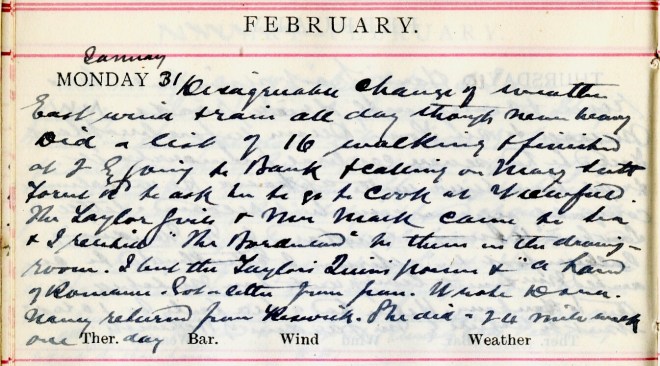 FEBRUARY.
January
MONDAY 31 Disagreeable change of weather
East wind & rain all day though never heavy
Did a list of 16 walking & finished
at J E going to Bank & calling on Mary
to ask her to go to Cook at
The Taylor girls & Mrs Mack came to tea
& I recited "The Borderland" to them in the drawing-
room. I lent the Taylors poems & "a hand
of Romance. Got a letter from Wrote
Nancy returned from Keswick. She did a 24 mile walk
one day
Ther. Bar. Wind Weather